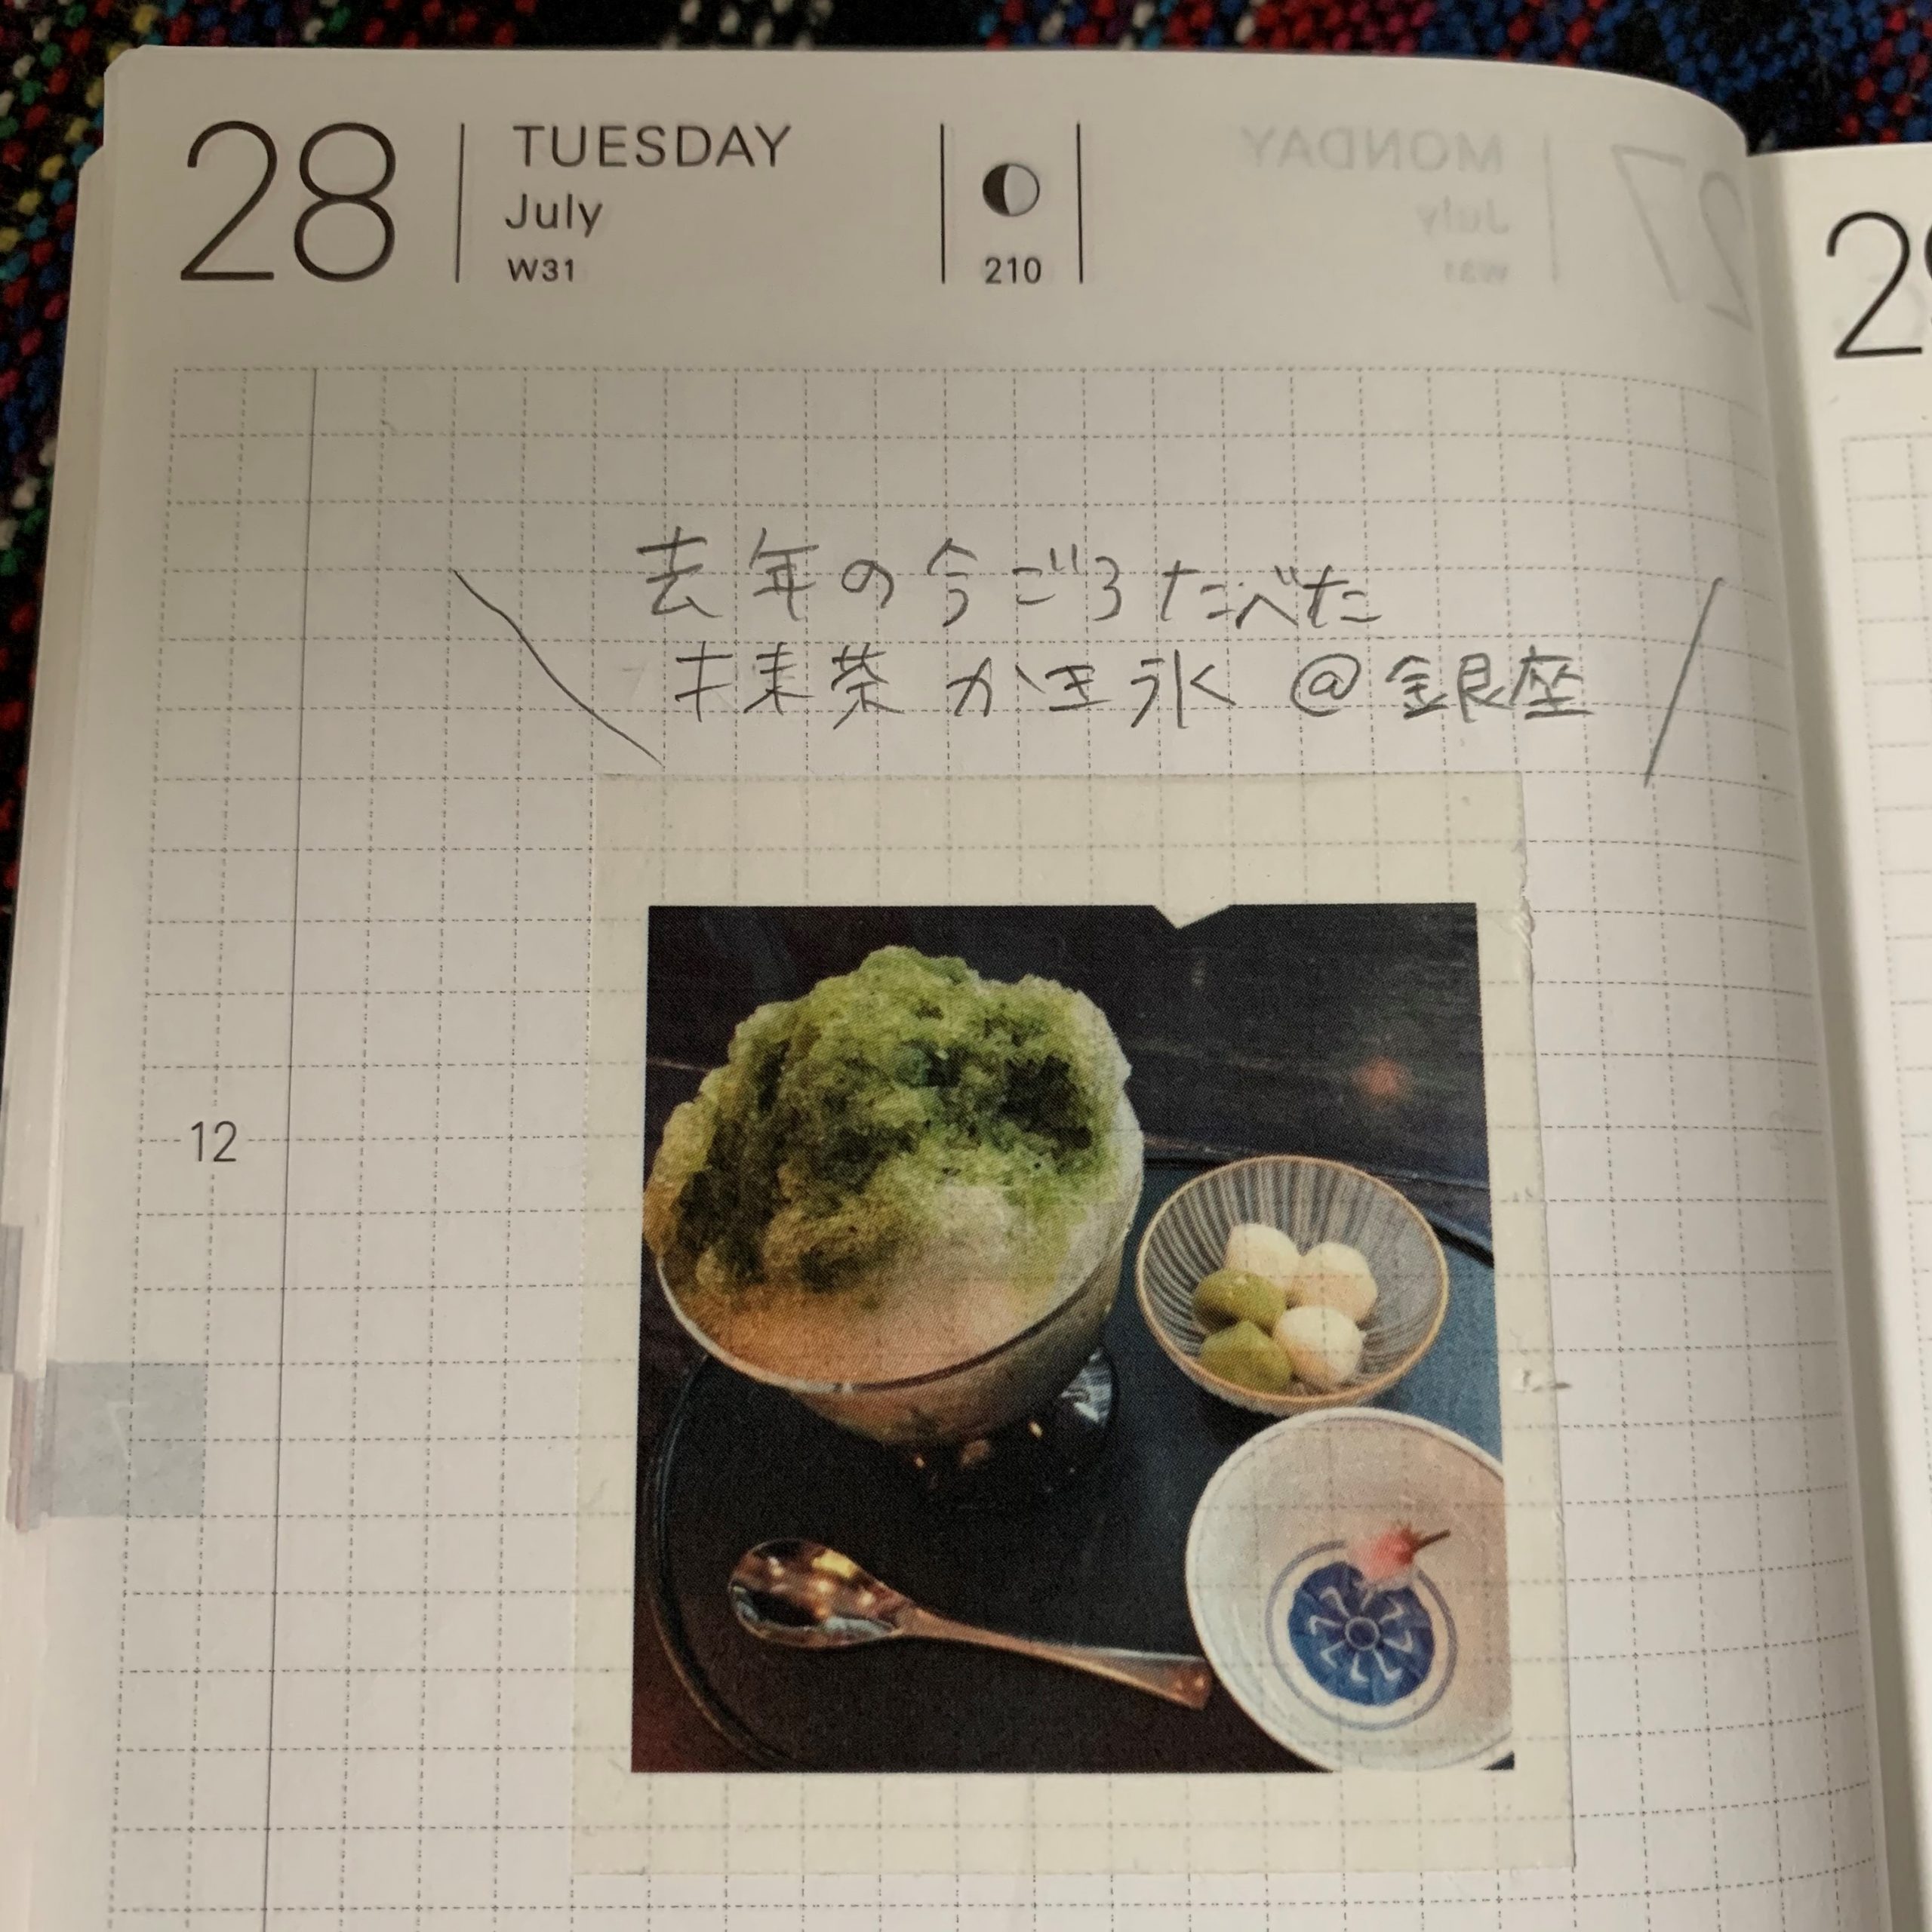 28 TUESDAY
July
W31
210
MONDAY 27
July
W31
去年の今ごろたべた
抹茶かき氷 @銀座
12